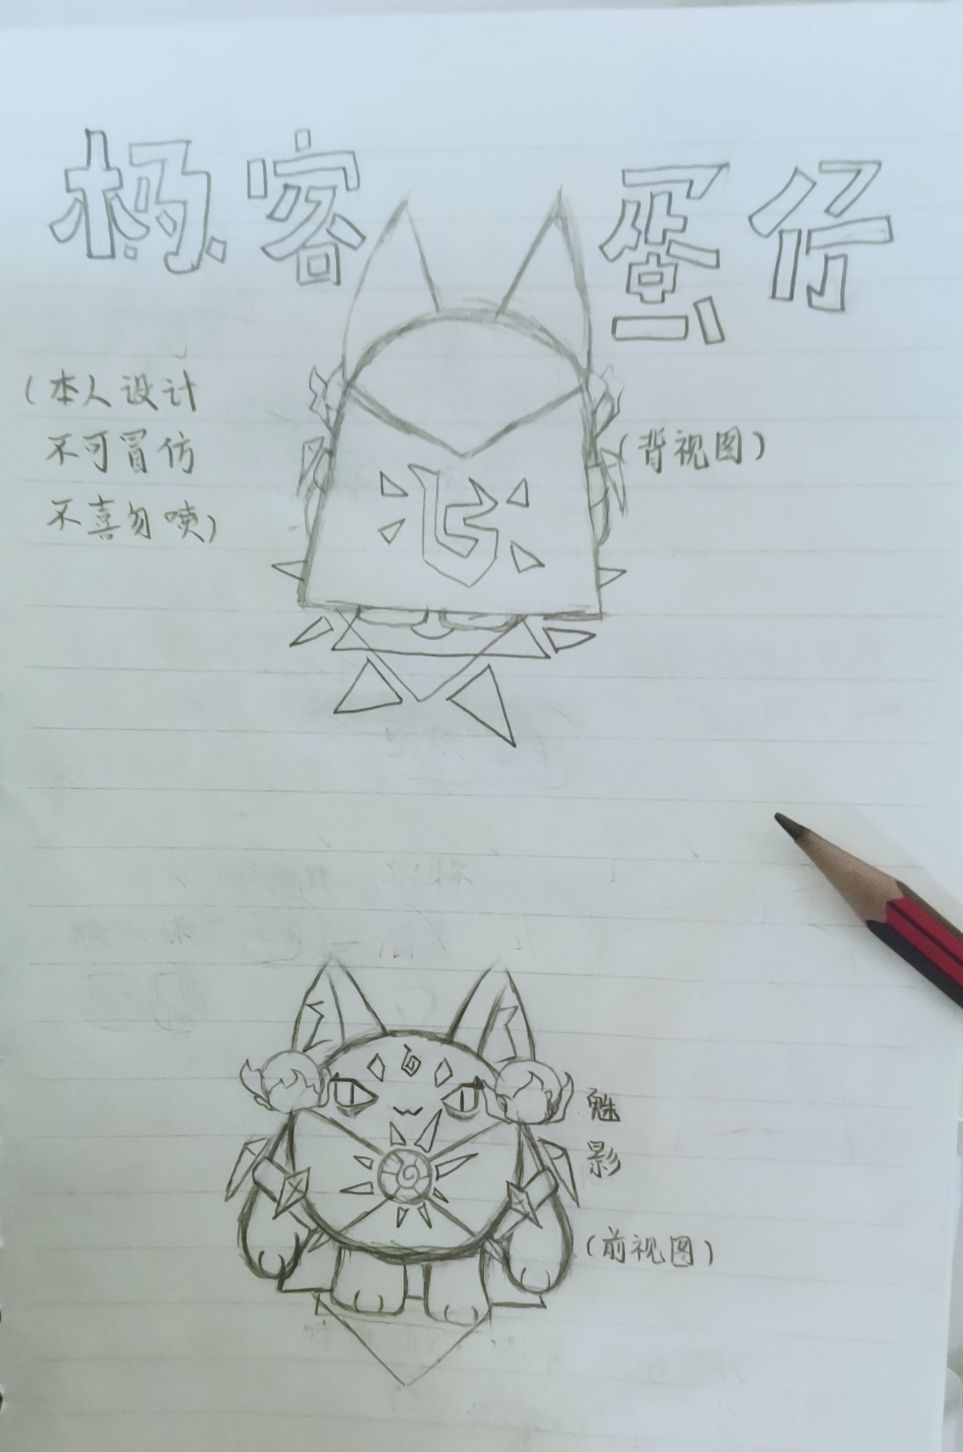 杨客 蛋仔
(本人设计
不可冒仿
不喜勿喷)
(背视图)
魅
影
(前视图)